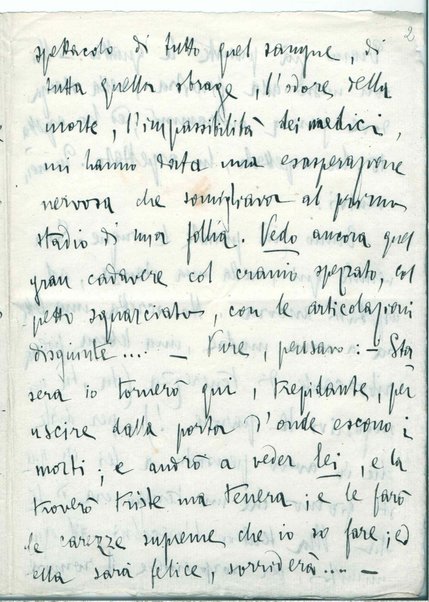 2
spettacolo di tutto quel sangue, di
tutta quella strage, l'odore della
morte, l'impassibilità dei medici,
mi hanno data una esasperazione
nervosa che somigliava al primo
stadio di una follia. Vedo ancora quel
gran cadavere col cranio spezzato, col
petto squarciato, con le articolazioni
disgiunte.... — Fare, pensavo: — Sta
sera io tornerò qui, trepidante, per
uscire dalla porta d'onde escono i
morti; e andrò a veder lei, e la
troverò triste ma tenera; e le farò
le carezze supreme che io so fare; ed
ella sarà felice, sorriderà.... —